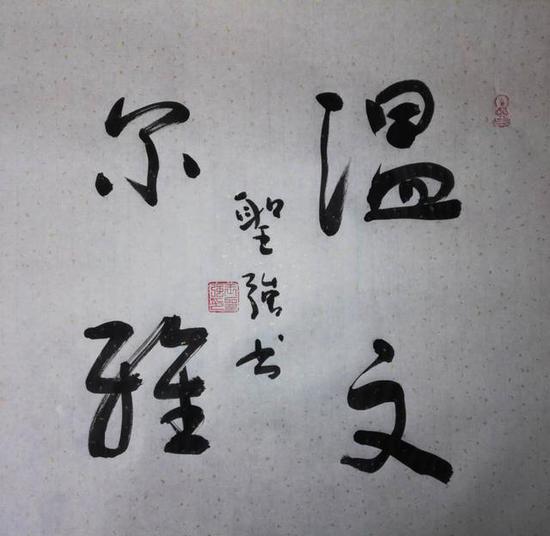 温文
尔雅
聖強书